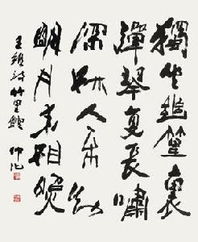 獨坐幽篁裏
彈琴復長嘯
深林人不知
明月來相照
王維詩竹里館